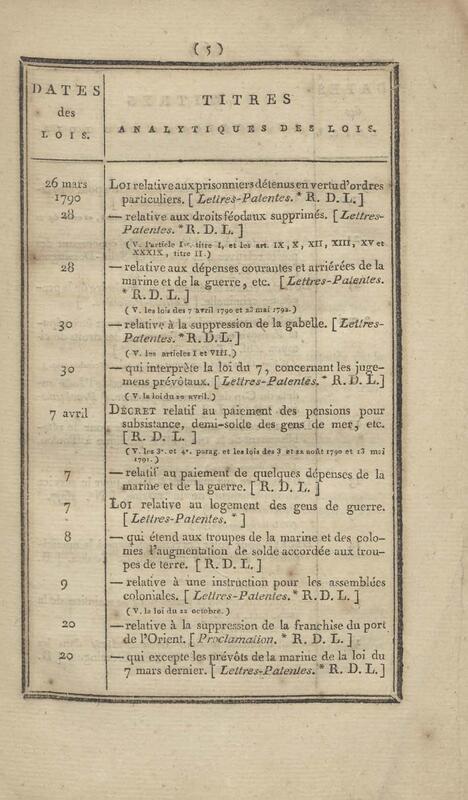 ( 5 )
DATES
des
LOIS.
TITRES
ANALYTIQUES DES LOIS.
26 mars
1790
LOI relative aux prisonniers détenus en vertu d'ordres
particuliers. [ Lettres-Patentes. * R. D. L. ]
28
— relative aux droits féodaux supprimés. [ Lettres-
Patentes. * R. D. L. ]
( V. l'article Ier. titre I, et les art. IX, X, XII, XIII, XV et
XXXIX, titre II. )
28
— relative aux dépenses courantes et arriérées de la
marine et de la guerre, etc. [ Lettres-Patentes.
* R. D. L. ]
( V. les lois des 7 avril 1790 et 28 mai 1792. )
30
— relative à la suppression de la gabelle. [ Lettres-
Patentes. * R. D. L. ]
( V. les articles I et VIII. )
30
— qui interprète la loi du 7, concernant les juge-
mens prévôtaux. [ Lettres-Patentes. * R. D. L. ]
( V. la loi du 20 avril. )
7 avril
DÉCRET relatif au paiement des pensions pour
subsistance, demi-solde des gens de mer, etc.
[ R. D. L. ]
( V. les 3e. et 4e. parag. et les lois des 3 et 22 août 1790 et 13 mai
1791. )
7
— relatif au paiement de quelques dépenses de la
marine et de la guerre. [ R. D. L. ]
7
LOI relative au logement des gens de guerre.
[ Lettres-Patentes. * ]
8
— qui étend aux troupes de la marine et des colo-
nies l'augmentation de solde accordée aux trou-
pes de terre. [ R. D. L. ]
9
— relative à une instruction pour les assemblées
coloniales. [ Lettres-Patentes. * R. D. L. ]
( V. la loi du 22 octobre. )
20
— relative à la suppression de la franchise du port
de l'Orient. [ Proclamation. * R. D. L. ]
20
— qui excepte les prévôts de la marine de la loi du
7 mars dernier. [ Lettres-Patentes. * R. D. L. ]